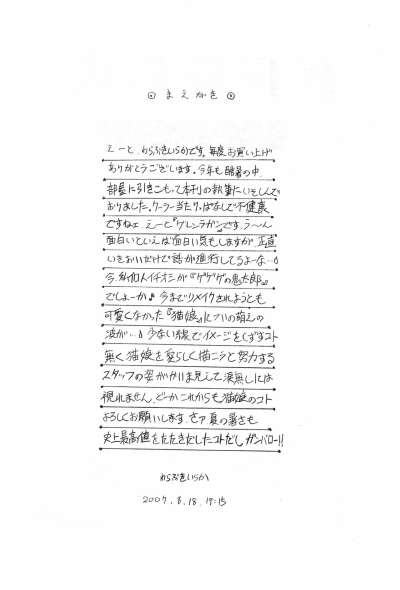 ◎ まえがき ◎
えーと、わらぶきいらかです。毎度お買い上げ
ありがとうございます。今年も酷暑の中、
部屋に引きこもって本刊の執筆にいそしんで
おりました。クーラー当たりっぱなしで不健康
ですねェ。えーと『グレンラガン』です。う〜〜ん
面白いといえば面白い気もしますが、正直
いきおいだけで話が進行してるよーな…
今、私的人イチオシが『ゲゲゲの鬼太郎』
でしょーか♪ 今までリメイクされようとも
可愛くなかった『猫娘』についの萌えの
波が…♪ 少ない線でイメージをくずすコト
無く猫娘を愛らしく描こうと努力する
スタッフの姿がかいま見えて涙無しには
視れません。どーかこれからも猫娘のコト
よろしくお願いします。さァ夏の暑さも
史上最高値をたたきだしたコトだし ガンバロー!!
わらぶきいらか
2007.8.18. 17:15